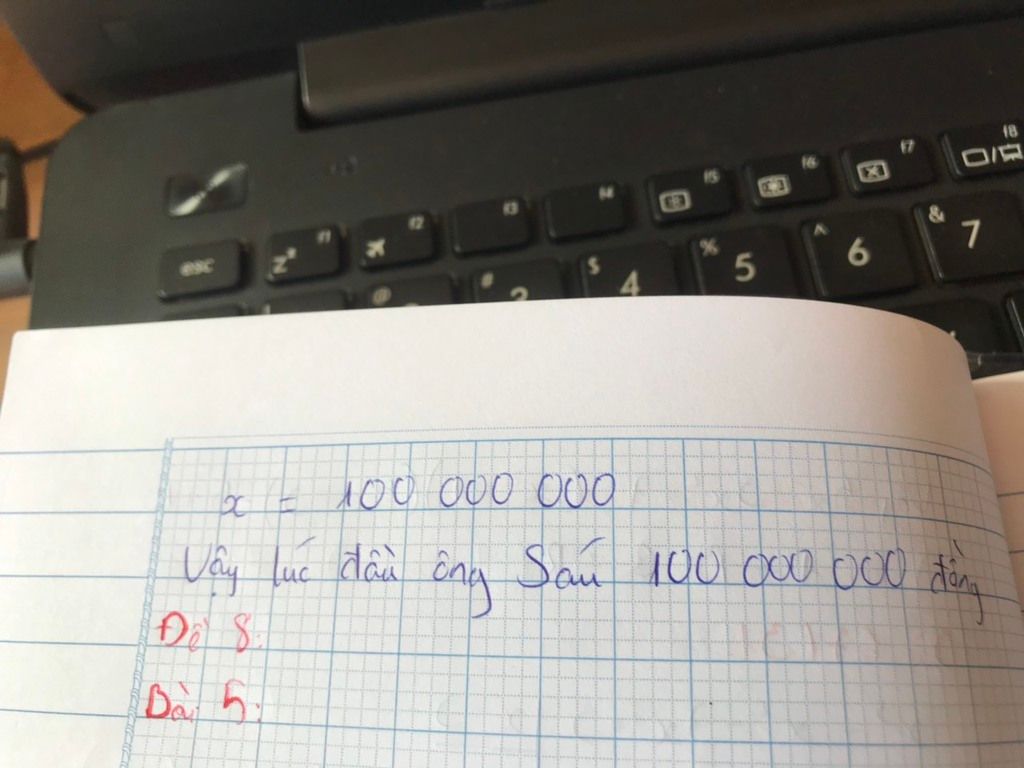 f8
f7
f6
f5
f4
f3
f2
f1
esc
zᶻ
@
#
3
$
4
%
5
^
6
&
7
x = 100 000 000
Vậy lúc đầu ông Sáu 100 000 000 đồng
Đề 8:
Bài 5: